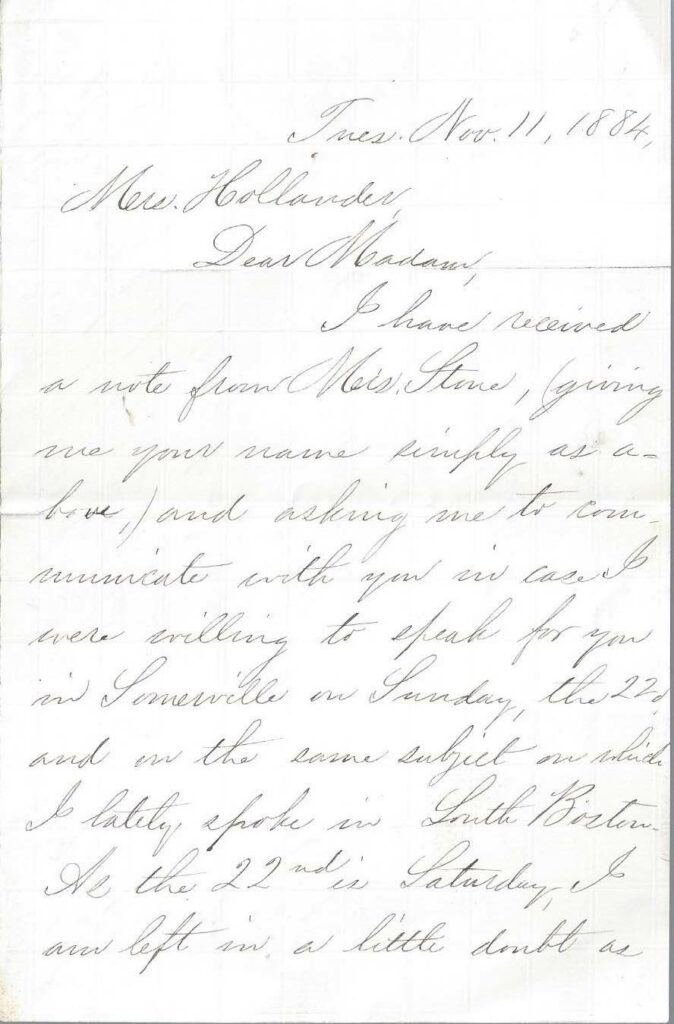 Tues. Nov. 11, 1884,
Mrs. Hollander,
Dear Madam,
I have received
a note from Mrs. Stone, (giving
me your name simply as a-
bove,) and asking me to com-
municate with you in case I
were willing to speak for you
in Somerville on Sunday, the 22d,
and on the same subject on which
I lately spoke in South Boston.
As the 22nd is Saturday, I
am left in a little doubt as